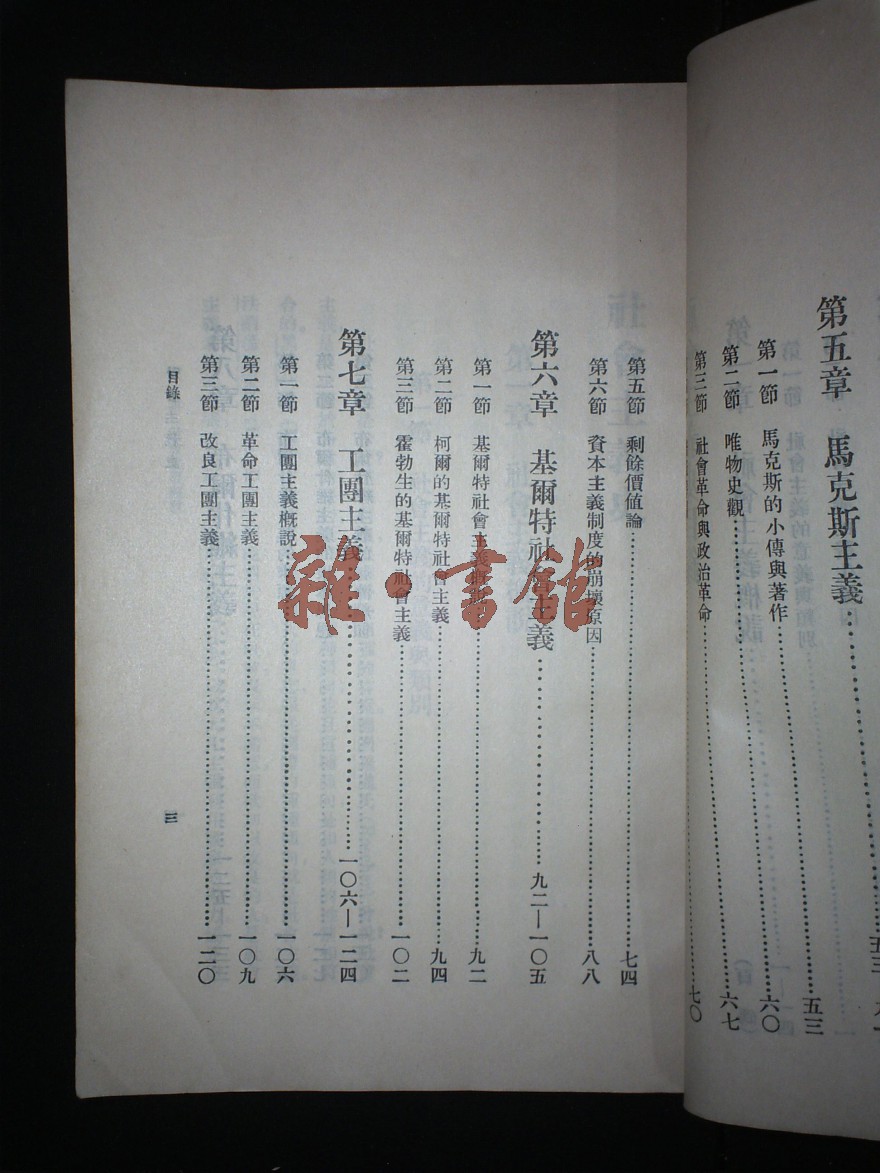 第五章 馬克斯主義
第一節 馬克斯的小傳與著作 五三
第二節 唯物史觀 六〇
第三節 社會革命與政治革命 六七
七〇
第五節 剩餘價值論 七四
第六節 資本主義制度的崩壞原因 八八
第六章 基爾特社會主義 九二—一〇五
第一節 基爾特社會主義概說 九二
第二節 柯爾的基爾特社會主義 九四
第三節 霍勃生的基爾特社會主義 一〇二
第七章 工團主義 一〇六—一二四
第一節 工團主義概說 一〇六
第二節 革命工團主義 一〇九
第三節 改良工團主義 一二〇
目錄
三
雜·書館